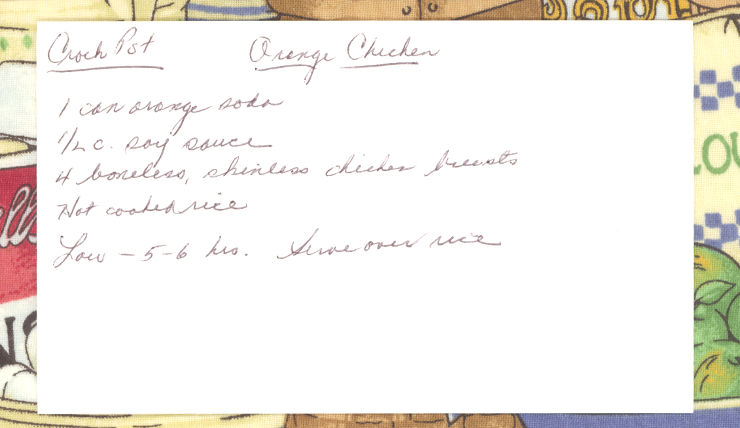 Crock Pot Orange Chicken
1 can orange soda
1/2 c. soy sauce
4 boneless, skinless chicken breasts
Hot cooked rice
Low – 5-6 hrs. Serve over rice